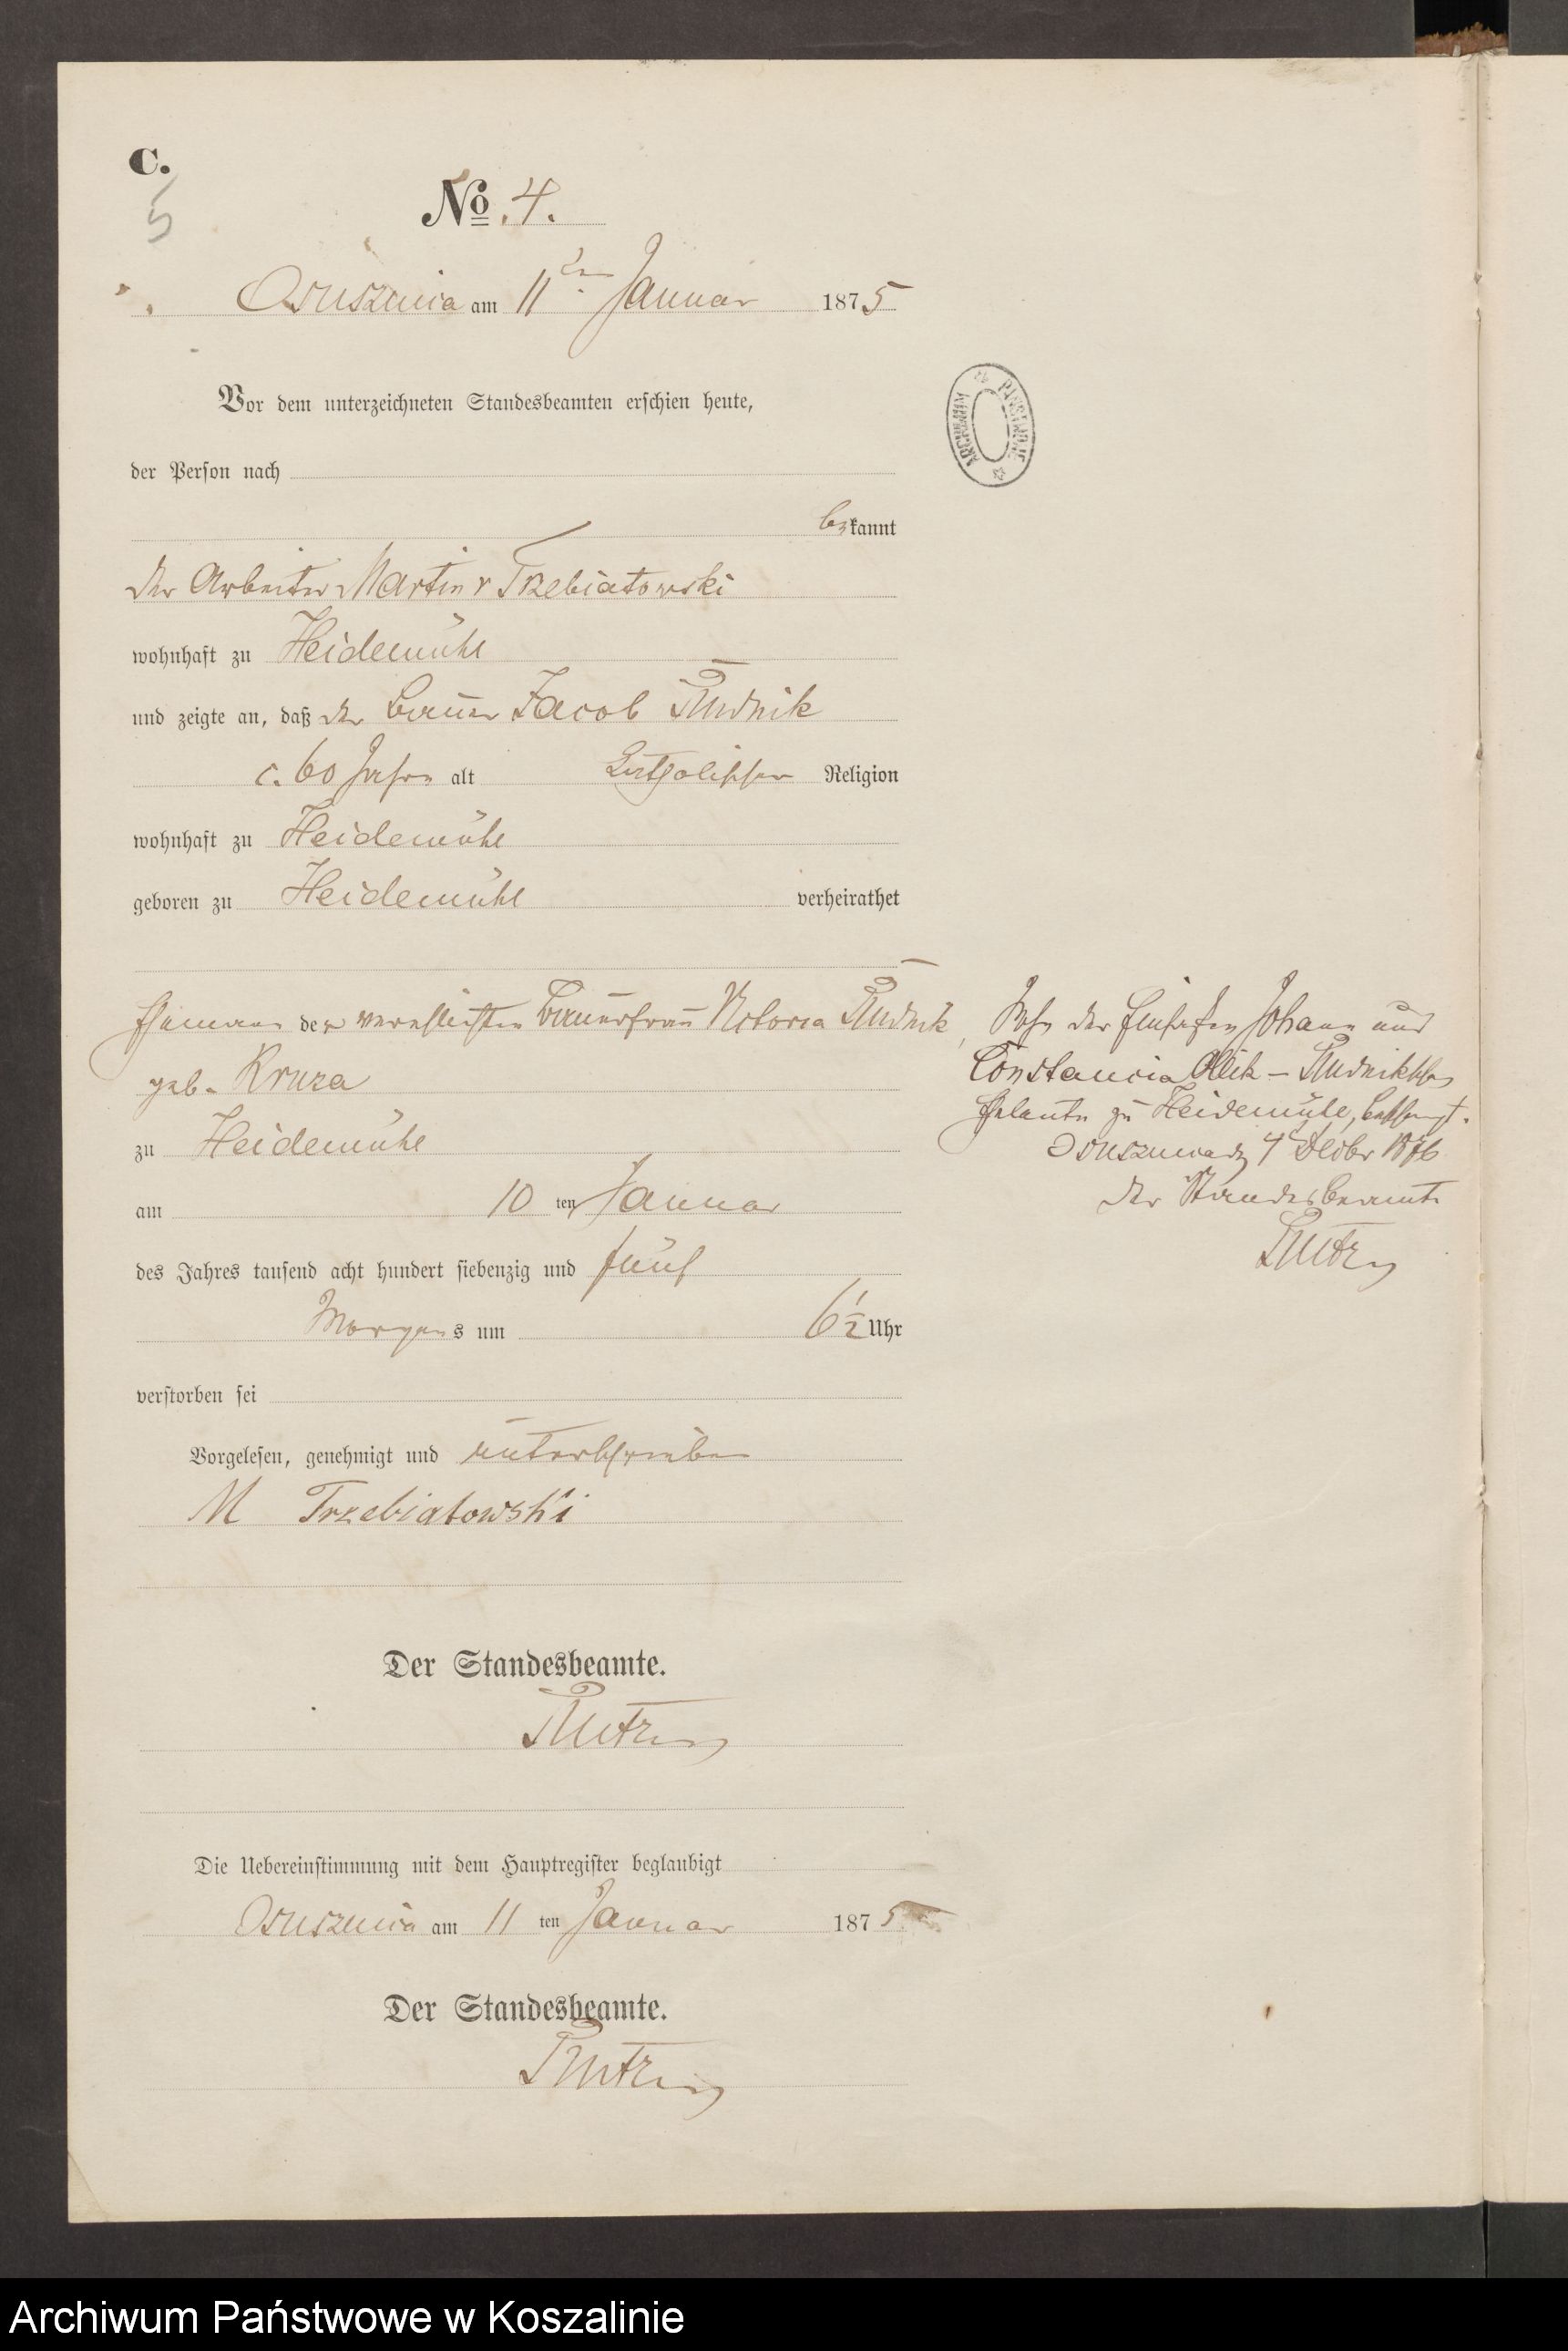 C.
5
No. 4.
Osusznica am 11ten Januar 1875
Vor dem unterzeichneten Standesbeamten erschien heute,
der Person nach
bekannt
der Arbeiter Martin v Trzebiatowski
wohnhaft zu Heidemühl
und zeigte an, daß der Bauer Jacob Rudnik
c. 60 Jahre alt katholischer Religion
wohnhaft zu Heidemühl
geboren zu Heidemühl verheirathet
Ehemann der verehelichten Bauerfrau Victoria Rudnik,
geb. Kruza
zu Heidemühl
am 10 ten Januar
des Jahres tausend acht hundert siebenzig und fünf
Morgens um 6 1/2 Uhr
verstorben sei
Vorgelesen, genehmigt und unterschrieben
M Trzebiatowski
Der Standesbeamte.
Die Uebereinstimmung mit dem Hauptregister beglaubigt
Osusznica am 11 ten Januar 1875
Der Standesbeamte.
Sohn der Johann und
Constancia Rudnikschen
Eheleute zu Heidemühle,
Osusznica d 4 1876
der Standesbeamte
ARCHIWUM PAŃSTWOWE
Archiwum Państwowe w Koszalinie